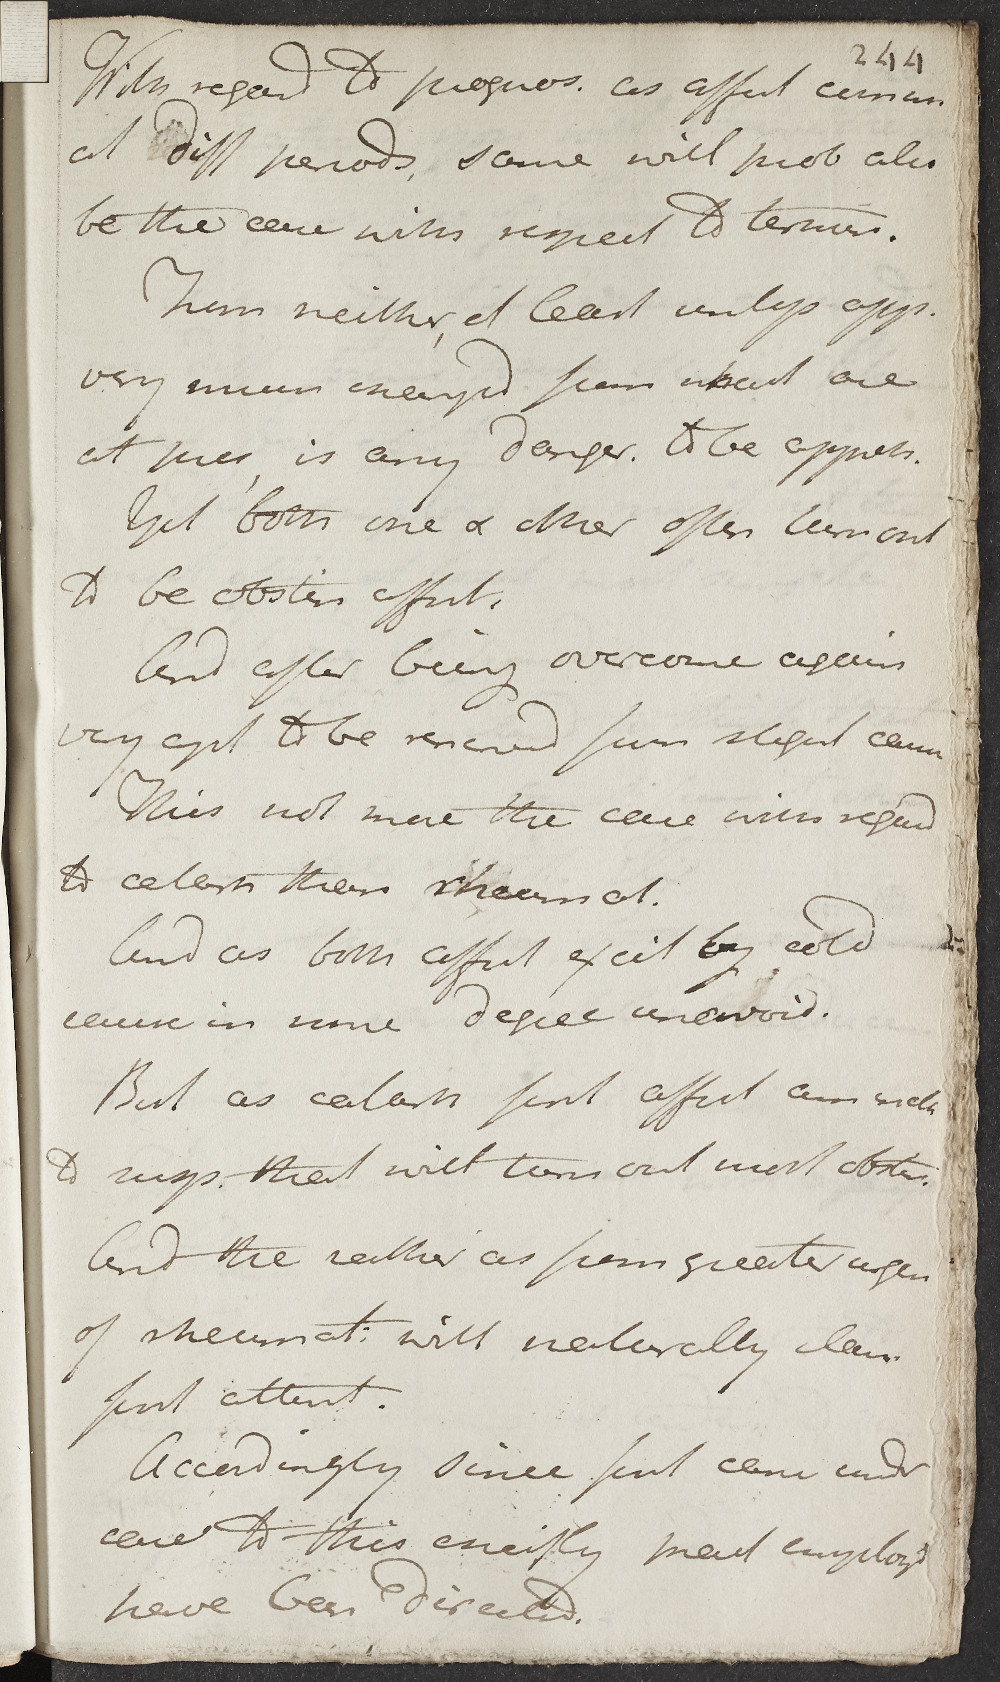 244
With regard to prognos. as affect common
at diff periods, same will prob also
be the case with respect to termin.
From neither, at least unless app.
very much chang'd from what are
at pres, is any danger. to be appreh.
Yet both one & other often turn out
to be obstin affect.
And after being overcome again
very apt to be renewed from slight caus
This not more the case with regard
to catarrh than rheumat.
And as both affect excit by cold
cause in some degree unavoid.
But as catarrh first affect am incli
to susp. that will turn out most obstin.
And the rather as from greater urgen
of rheumat: will naturally claim
first attent.
Accordingly since first came under
care to this chiefly pract employ'd
have been directed.